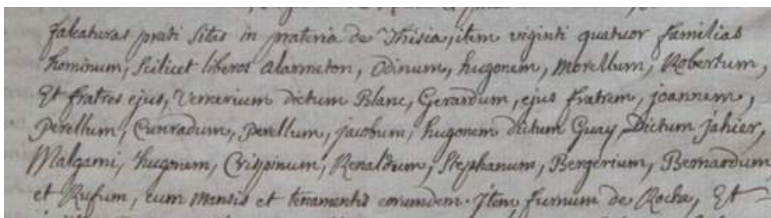 falcaturas prati sitas in prateria de Thisia, item viginti quatuor familias
hominum, scilicet liberos alarmeton, Odinum, hugonem, Morellum, Robertum,
Et fratres ejus, Vernerium dictum Blanc, Gerardum, ejus fratrem, joannem,
perellum, Cunradum, perellum, jacobum, hugonem dictum Guay Dictum jahier,
Malgarni, hugonem, Crispinum, Renaldum, Stephanum, Bergerium, Bernardum
et Rufum, cum mansis et tenamentis eorumdem. Item furnum de Rocha, Et